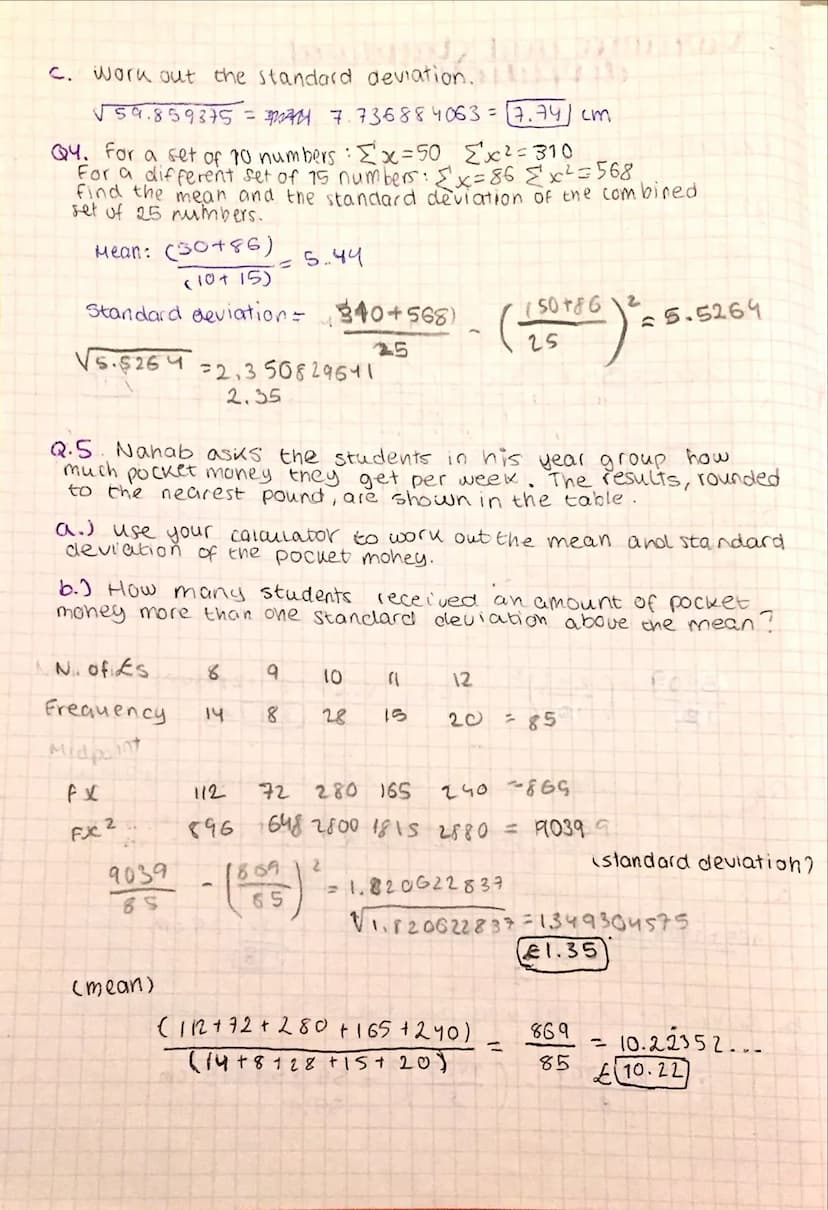 c. Work out the standard deviation.
√59.859375 = 7.736884063 = 7.74 cm
Q4. For a set of 10 numbers : Σx=50 Σx²=310
For a different set of 15 numbers: Σx=86 Σx²=568
Find the mean and the standard deviation of the combined
set of 25 numbers.
Mean: (50+86) / (10+15) = 5.44
Standard deviation = (310+568) / 25 - ((50+86) / 25)² = 5.5264
√5.5264 = 2.350829641
2.35
Q.5. Nahab asks the students in his year group how
much pocket money they get per week. The results, rounded
to the nearest pound, are shown in the table.
a.) use your calculator to work out the mean and standard
deviation of the pocket money.
b.) How many students received an amount of pocket
money more than one standard deviation above the mean?
N. of £s 8 9 10 11 12
Frequency 14 8 28 15 20 = 85
Midpoint
fx 112 72 280 165 240 = 869
Fx² 896 648 2800 1815 2880 = 9039
(standard deviation)
9039 / 85 - (869 / 85)² = 1.820622837
√1.820622837 = 1.349304575
£1.35
(mean)
(112+72+280+165+240) / (14+8+28+15+20) = 869 / 85 = 10.22352...
£10.22